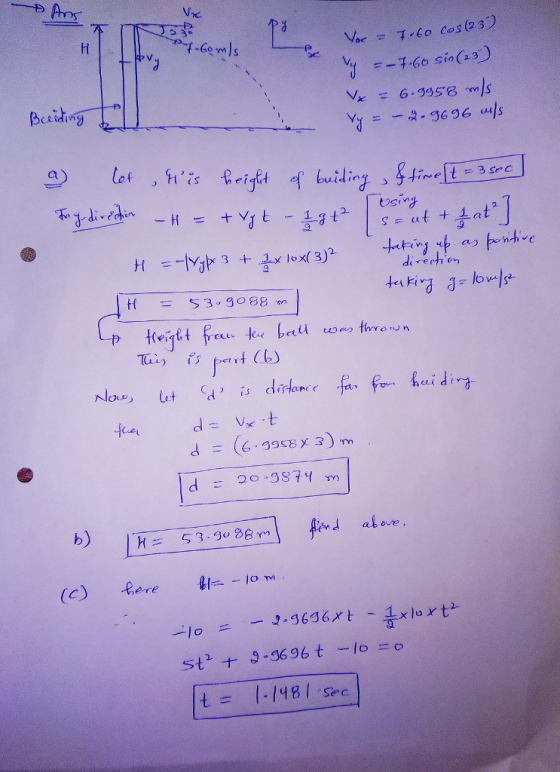 Ans
Vx
23°
7.60 m/s
Vy
H
Building
y
x
Vx = 7.60 cos(23°)
Vy = -7.60 sin(23°)
Vx = 6.9958 m/s
Vy = -2.9696 m/s
a) Let, 'H' is height of buiding, & time t = 3 sec
In y-direction
-H = + Vy t - 1/2 g t²
[Using s = ut + 1/2 at²]
taking up as positive direction
taking g = 10 m/s²
H = -|Vy|x 3 + 1/2 x 10x(3)²
H = 53.9088 m
Height from the ball was thrown
This is part (b)
Now, let 'd' is distance far from buiding
then d = Vx · t
d = (6.9958 x 3) m.
d = 20.9874 m
b) H = 53.9088 m find above.
(c) here H = -10 m.
∴ -10 = - 2.9696 x t - 1/2 x 10 x t²
5t² + 2.9696 t - 10 = 0
t = 1.1481 sec